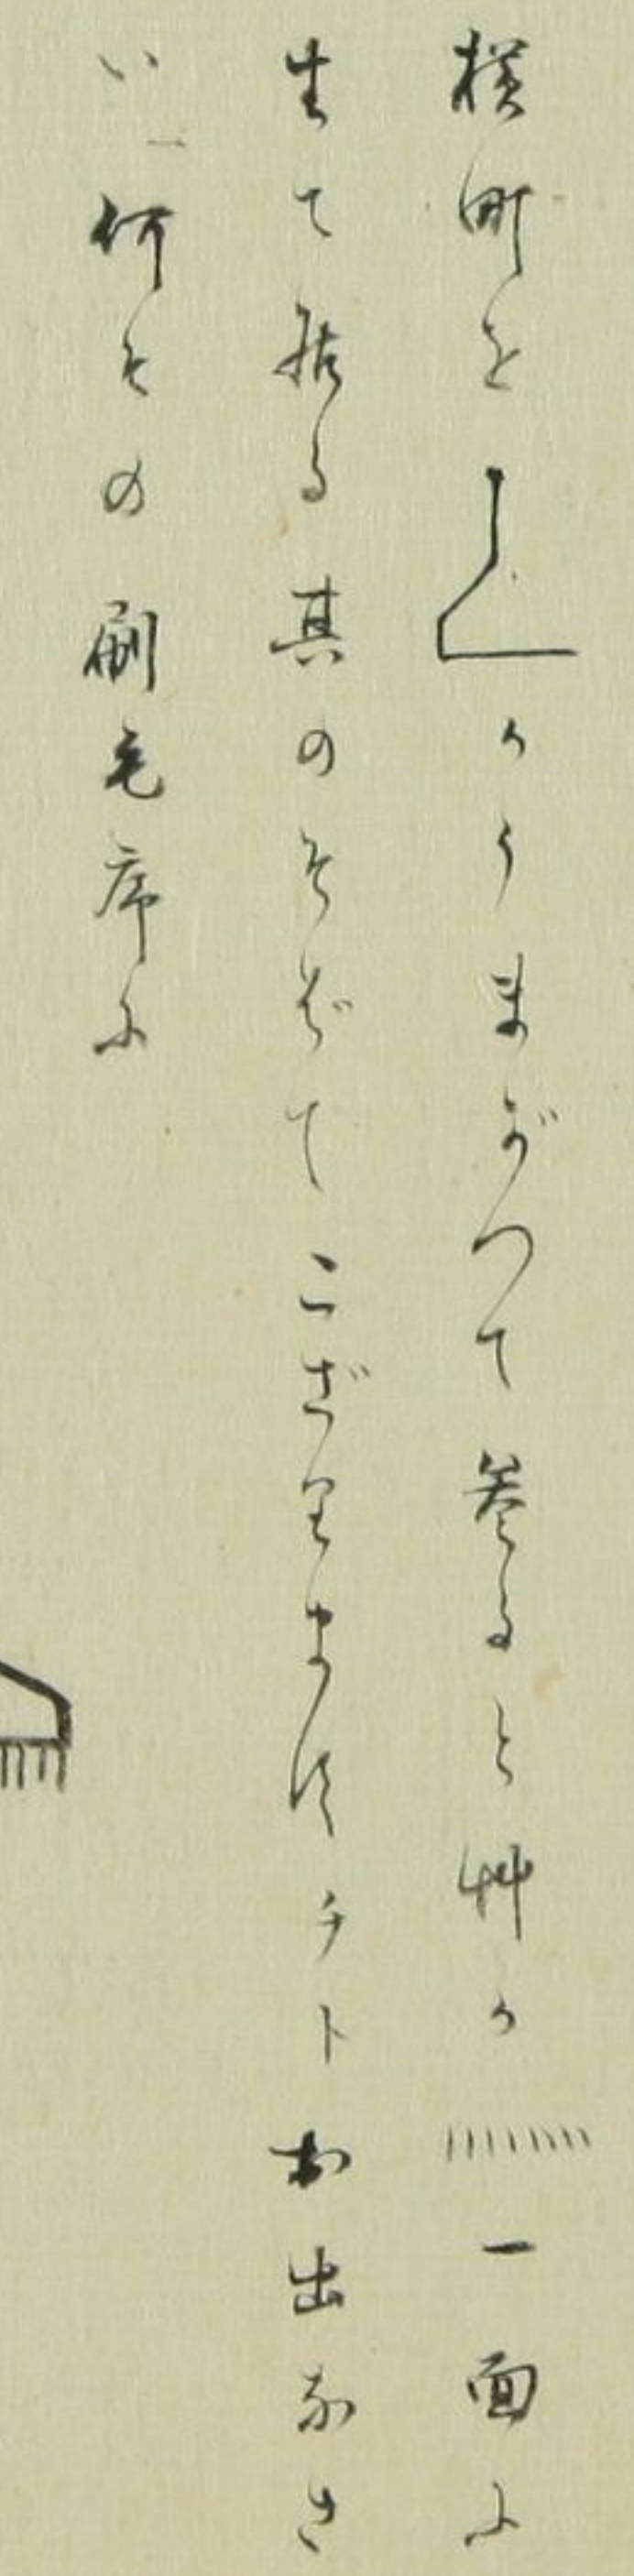 横町をかうまがつて参ると艸か一面に
生て居る其のそばでこざりますチトお出なさ
い何その刷毛席に